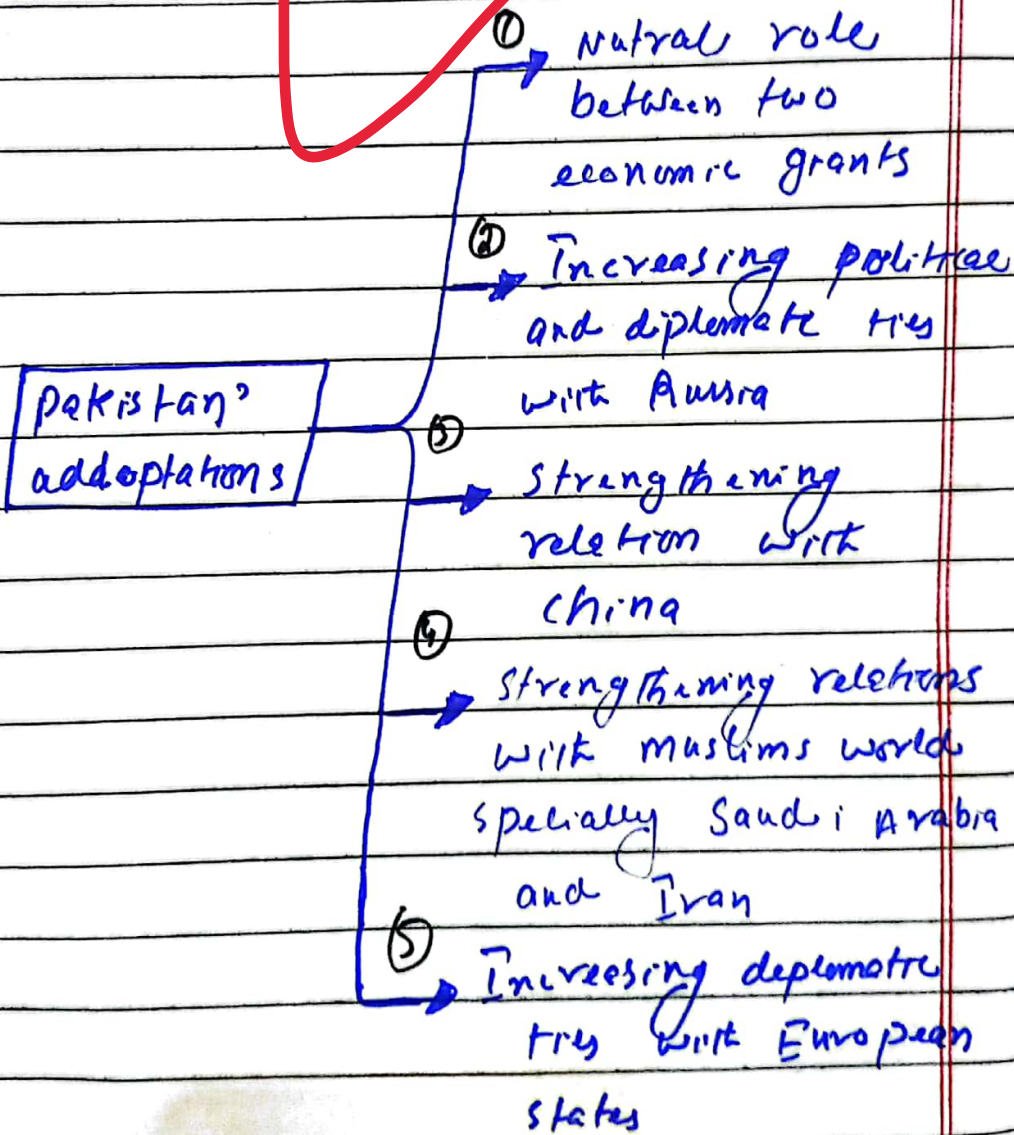 Pakistan'
addoptations
① Nutral role
between two
economic grants
② Increasing political
and diplomate ties
with Russia
③ Strengthening
relation with
China
④ Strengthening relations
with muslims world
specially Saudi Arabia
and Iran
⑤ Increesing deplomatic
ties with European
states